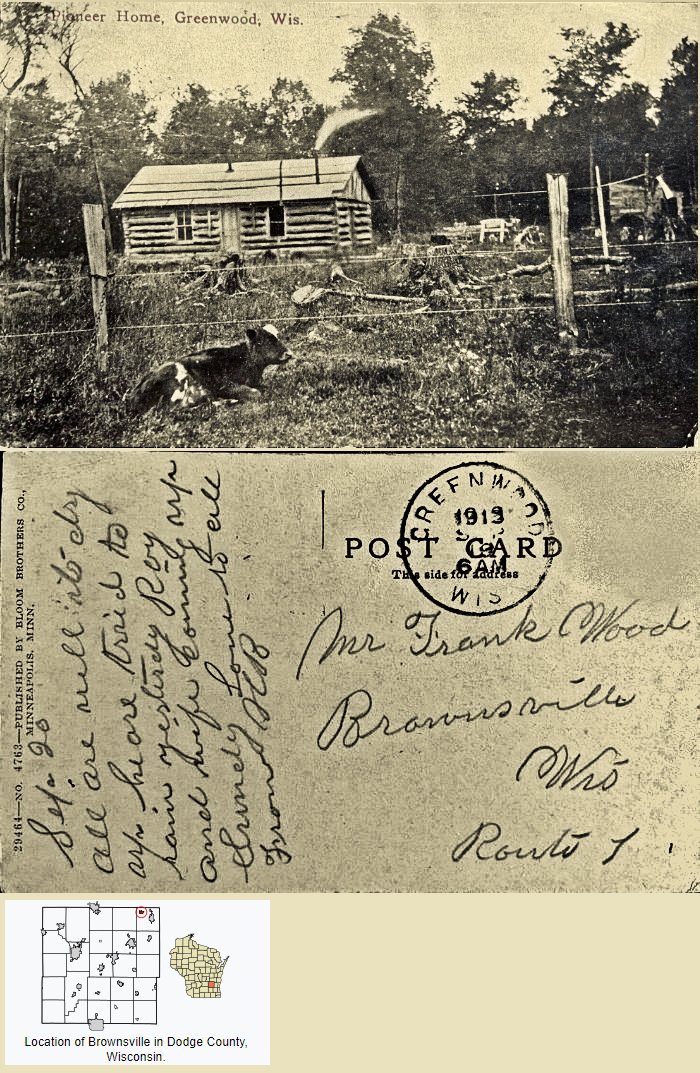 Pioneer Home, Greenwood, Wis.
29464—NO. 4763—PUBLISHED BY BLOOM BROTHERS CO.,
MINNEAPOLIS, MINN.
Sep 20
all are well into dry
up he are traid to
rain yesterdy Roy
and wife coming up
Sundy Love to all
From
GREENWOOD
1913
6AM
WIS
POST CARD
This side for address
Mr Frank Wood
Brownsville
Wis
Route 1
Location of Brownsville in Dodge County,
Wisconsin.